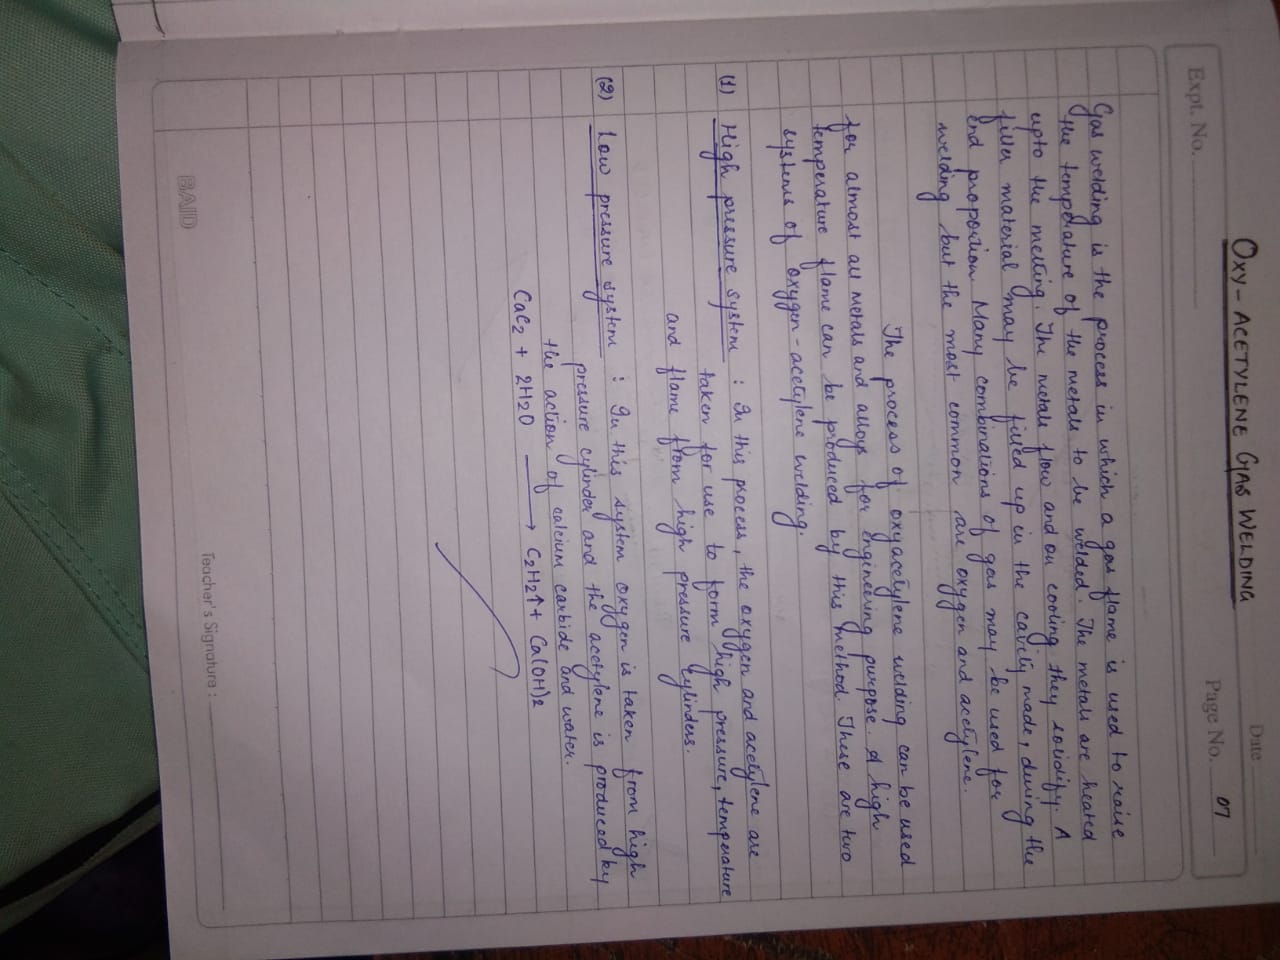 Date
OXY-ACETYLENE GAS WELDING
Expt. No.
Page No. 07
Gas welding is the process in which a gas flame is used to raise
the temperature of the metals to be welded. The metals are heated
upto the melting. The metals flow and on cooling they solidify. A
filler material may be filled up in the cavity made, during the
end proportion. Many combinations of gas may be used for
welding but the most common are oxygen and acetylene.
The process of oxyacetylene welding can be used
for almost all metals and alloys for engineering purpose. A high
temperature flame can be produced by this method. These are two
systems of oxygen-acetylene welding.
(1) High pressure system : In this process, the oxygen and acetylene are
taken for use to form high pressure, temperature
and flame from high pressure cylinders.
(2) Low pressure system : In this system oxygen is taken from high
pressure cylinder and the acetylene is produced by
the action of calcium carbide and water.
CaC2 + 2H2O → C2H2↑ + Ca(OH)2
BAID
Teacher's Signature :